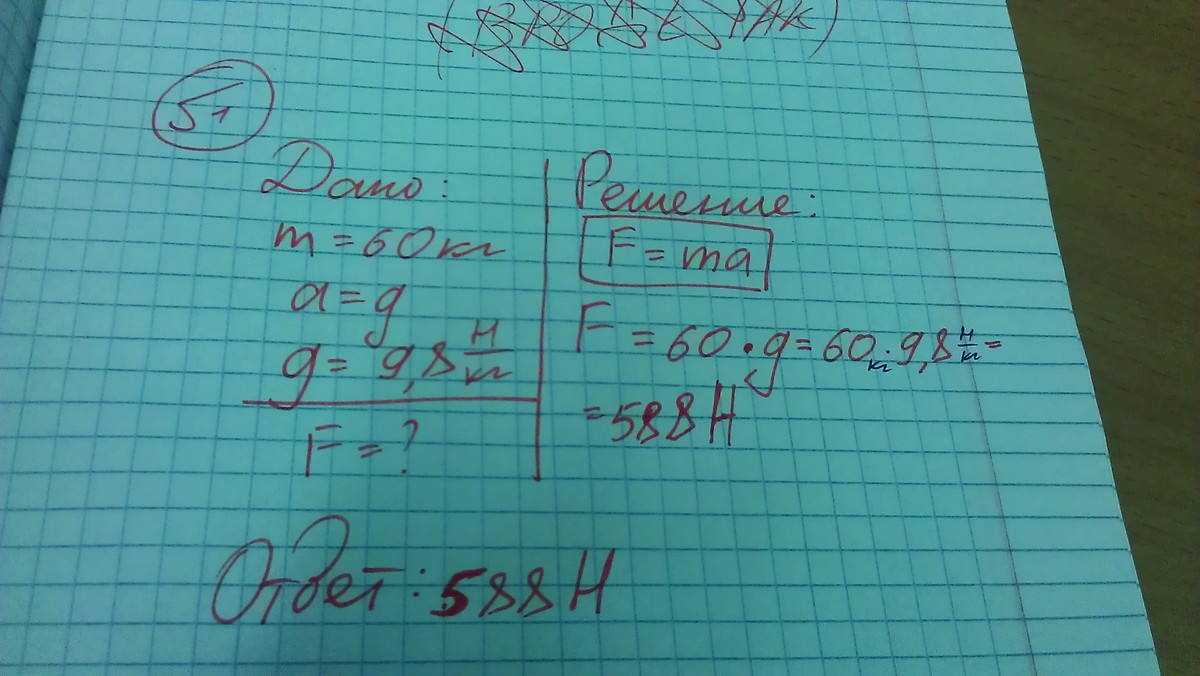 51
Дано:
m = 60 кг
a = g
g = 9,8 Н/кг
F = ?
Решение:
F = ma
F = 60 · g = 60 кг · 9,8 Н/кг =
= 588 Н
Ответ: 588 Н